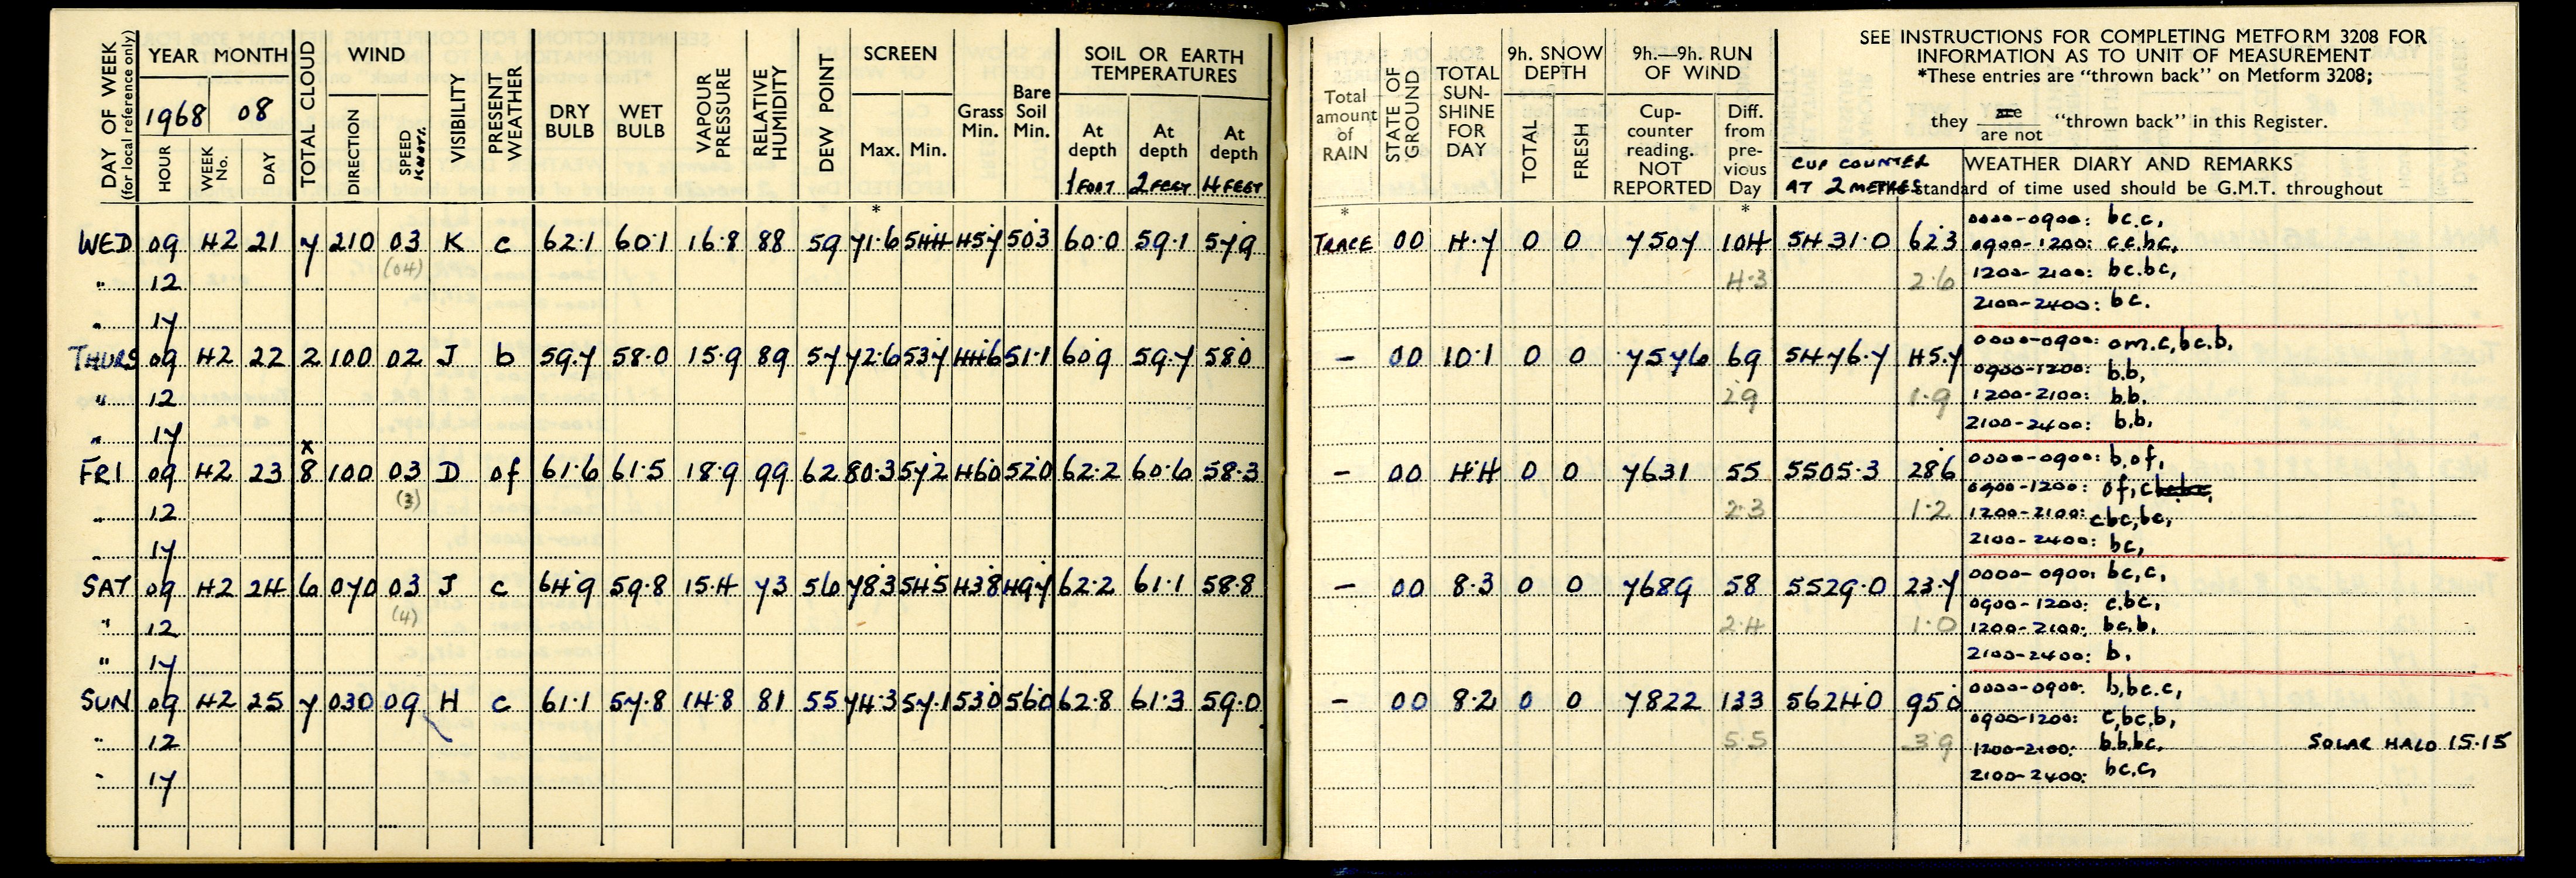 DAY OF WEEK
(for local reference only)
YEAR MONTH
1968 08
HOUR
WEEK No.
DAY
TOTAL CLOUD
WIND
DIRECTION
SPEED KNOTS.
VISIBILITY
PRESENT WEATHER
DRY BULB
WET BULB
VAPOUR PRESSURE
RELATIVE HUMIDITY
DEW POINT
SCREEN
Max. Min.
*
Grass Min.
Bare Soil Min.
SOIL OR EARTH TEMPERATURES
At depth 1 FOOT
At depth 2 FEET
At depth 4 FEET
Total amount of RAIN
*
STATE OF GROUND
TOTAL SUN-SHINE FOR DAY
9h. SNOW DEPTH
TOTAL
FRESH
9h.—9h. RUN OF WIND
Cup-counter reading. NOT REPORTED
Diff. from pre-vious Day
*
SEE INSTRUCTIONS FOR COMPLETING METFORM 3208 FOR
INFORMATION AS TO UNIT OF MEASUREMENT
*These entries are "thrown back" on Metform 3208;
they are / are not "thrown back" in this Register.
CUP COUNTER AT 2 METRES
WEATHER DIARY AND REMARKS
standard of time used should be G.M.T. throughout
WED 09 42 21 7 210 03 K c 62.1 60.1 16.8 88 59 71.6 54.4 45.7 50.3 60.0 59.1 57.9 TRACE 00 4.7 0 0 7507 104 5431.0 62.3 0000-0900: bc.c,
0900-1200: c.c.bc,
" 12 (04) 4.3 2.6 1200-2100: bc.bc,
" 17 2100-2400: bc.
THURS 09 42 22 2 100 02 J b 59.7 58.0 15.9 89 57 72.6 53.7 44.6 51.1 60.9 59.7 58.0 - 00 10.1 0 0 7576 69 5476.7 45.7 0000-0900: om.c,bc.b,
0900-1200: b.b,
" 12 2.9 1.9 1200-2100: b.b.
" 17 2100-2400: b.b,
x
FRI 09 42 23 8 100 03 D of 61.6 61.5 18.9 99 62 80.3 57.2 46.0 52.0 62.2 60.6 58.3 - 00 4.4 0 0 7631 55 5505.3 28.6 0000-0900: b,of,
0900-1200: of,c
" 12 (3) 2.3 1.2 1200-2100: cbc,bc,
" 17 2100-2400: bc,
SAT 09 42 24 6 070 03 J c 64.9 59.8 15.4 73 56 78.3 54.5 43.8 49.7 62.2 61.1 58.8 - 00 8.3 0 0 7689 58 5529.0 23.7 0000-0900: bc,c,
0900-1200: c.bc,
" 12 (4) 2.4 1.0 1200-2100: bc.b,
" 17 2100-2400: b,
SUN 09 42 25 7 030 09 H c 61.1 57.8 14.8 81 55 74.3 57.1 53.0 56.0 62.8 61.3 59.0 - 00 8.2 0 0 7822 133 5624.0 95.0 0000-0900: b,bc.c,
0900-1200: c,bc,b,
" 12 5.5 3.9 1200-2100: b.b.bc, SOLAR HALO 15.15
" 17 2100-2400: bc.c,